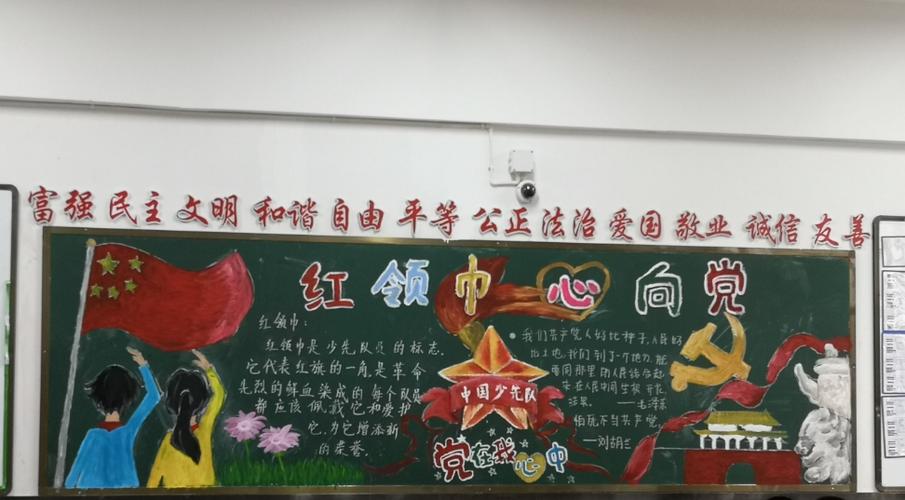 富强 民主 文明 和谐 自由 平等 公正 法治 爱国 敬业 诚信 友善
红领巾心向党
红领巾:
红领巾是少先队员的标志.
它代表红旗的一角,是革命
先烈的鲜血染成的.每个队员
都应该佩戴它和爱护
它,为它增添新
的荣誉.
中国少先队
党在我心中
我们共产党人好比种子,人民好
比土地.我们到了一个地方,就
要同那里的人民结合起
来在人民中间生根开花
结果.
——毛泽东
怕死不当共产党.
——刘胡兰